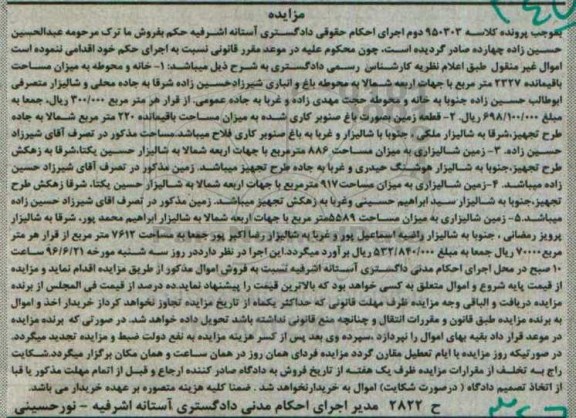 مزایده
بموجب پرونده کلاسه ۹۵۰۳۰۳ دوم اجرای احکام حقوقی دادگستری آستانه اشرفیه حکم بفروش ما ترک مرحومه عبدالحسین
حسین زاده چهارده صادر گردیده است، چون محکوم علیه در موعد مقرر قانونی نسبت به اجرای حکم خود اقدامی ننموده است
اموال غیر منقول طبق اعلام نظریه کارشناس رسمی دادگستری به شرح ذیل میباشد: ۱- خانه و محوطه به میزان مساحت
باقیمانده ۲۳۲۷ متر مربع با جهات اربعه شمالا به محوطه باغ و انباری شیرزادحسین زاده شرقا به جاده محلی و شالیزار متصرفی
ابوطالب حسین زاده جنوبا به خانه ومحوطه حجت مهدی زاده و غربا به جاده عمومی، از قرار هر متر مربع ۳۰۰/۰۰۰ ریال، جمعا به
مبلغ ۶۹۸/۱۰۰/۰۰۰ ریال. ۲- قطعه زمین بصورت باغ صنوبر کاری شده به میزان مساحت باقیمانده ۲۲۰ متر مربع شمالا به جاده
طرح تجهیز،شرقا به شالیزار ملکی ، جنوبا با شالیزار و غربا به باغ صنوبر کاری فلاح میباشد.مساحت مذکور در تصرف آقای شیرزاد
حسین زاده. ۳- زمین شالیزاری به میزان مساحت ۸۸۶ مترمربع با جهات اربعه شمالا به شالیزار حسین یکتا،شرقا به زهکش
طرح تجهیز،جنوبا به شالیزار هوشنگ حیدری و غربا به جاده طرح تجهیز میباشد. زمین مذکور در تصرف آقای شیرزاد حسین
زاده میباشد. ۴-زمین شالیزاری به میزان مساحت ۹۱۷ مترمربع با جهات اربعه شمالا به شالیزار حسین یکتا، شرقا زهکش طرح
تجهیز،جنوبا به شالیزار سید ابراهیم حسینی وغربا به زهکش تجهیز میباشد. زمین مذکور در تصرف آقای شیرزاد حسین زاده
میباشد.۵- زمین شالیزاری به میزان مساحت ۵۵۸۹متر مربع با جهات اربعه شمالا به شالیزار ابراهیم محمد پور، شرقا به شالیزار
پرویز رمضانی ، جنوبا به شالیزار راضیه اسماعیل پور وغربا به شالیزار رضا اکبر پور جمعا به مساحت ۷۶۱۲ متر مربع از قرار هر متر
مربع ۷۰۰۰۰ ریال جمعا به مبلغ ۵۳۲/۸۴۰/۰۰۰ ریال برآورد میگردد.این اجرا در نظر دارددر روز سه شنبه مورخه ۹۶/۶/۲۱ ساعت
۱۰ صبح در محل اجرای احکام مدنی دادگستری آستانه اشرفیه نسبت به فروش اموال مذکور از طریق مزایده اقدام نماید و مزایده
از قیمت پایه شروع و اموال متعلق به کسی خواهد بود که بالاترین قیمت را پیشنهاد نماید.ده درصد از قیمت فی المجلس از برنده
مزایده دریافت و الباقی وجه مزایده ظرف مهلت قانونی که حداکثر یکماه از تاریخ مزایده تجاوز نخواهد کرداز خریدار اخذ و اموال
به برنده مزایده طبق قانون و مقررات انتقال و چنانچه منع قانونی نداشته باشد تحویل داده خواهد شد. در صورتی که برنده مزایده
در موعد قرار داد بقیه بهای اموال را نپردازد ،سپرده وی بعد پس از کسر هزینه مزایده به نفع دولت ضبط و مزایده تجدید میگردد.
در صورتیکه روز مزایده با ایام تعطیل مقارن گردد مزایده فردای همان روز در همان ساعت و همان مکان برگزار میگردد.شکایت
راجع به تخلف از مقررات مزایده ظرف یک هفته از تاریخ فروش به دادگاه صادر کننده ارجاع و قبل از اتمام مهلت مذکور یا قبل
از اتخاذ تصمیم دادگاه ( درصورت شکایت) اموال به خریدارنخواهد شد . ضمنا کلیه هزینه متصوره بر عهده خریدار می باشد.
ح ۲۸۲۲ مدیر اجرای احکام مدنی دادگستری آستانه اشرفیه - نورحسینی